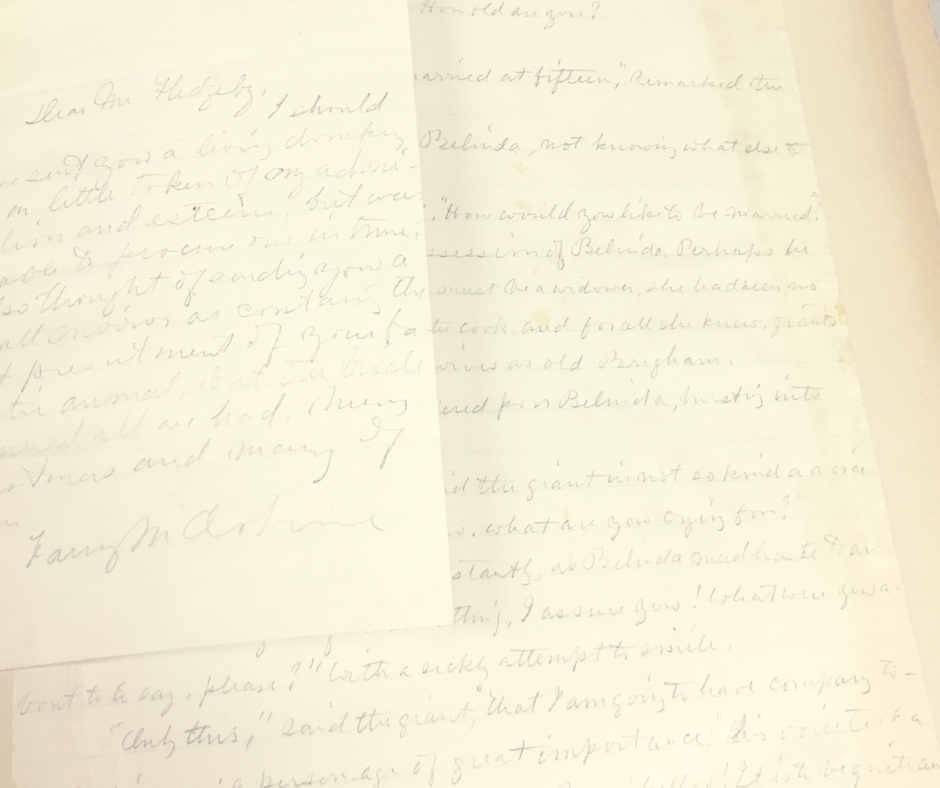 Dear Mr Fledgeby,
I should
sent you a living donkey
little token of my admi-
tion and esteem, but was
able to procure one in time.
so thought of sending you a
all mirror as containing the
t presentment of your fa
the animal, but the
all we had. Merry
stmas and many of
How old are you?
arried at fifteen," Remarked the
Belinda, not knowing what else to
"How would you like to be married?"
ssession of Belinda. Perhaps he
must be a widower, she had seen no
the cook, and for all she knew, giants
wives as old Brigham.
ered poor Belinda, bursting into
id the giant in not so kind a voice
what are you crying for?"
stantly, as Belinda made haste to an-
thing, I assure you! What were you a-
bout to to say, please?" with a sickly attempt to smile.
"Only this," said the giant, "that I am going to have company to-
a personage of great importance," his voice took a